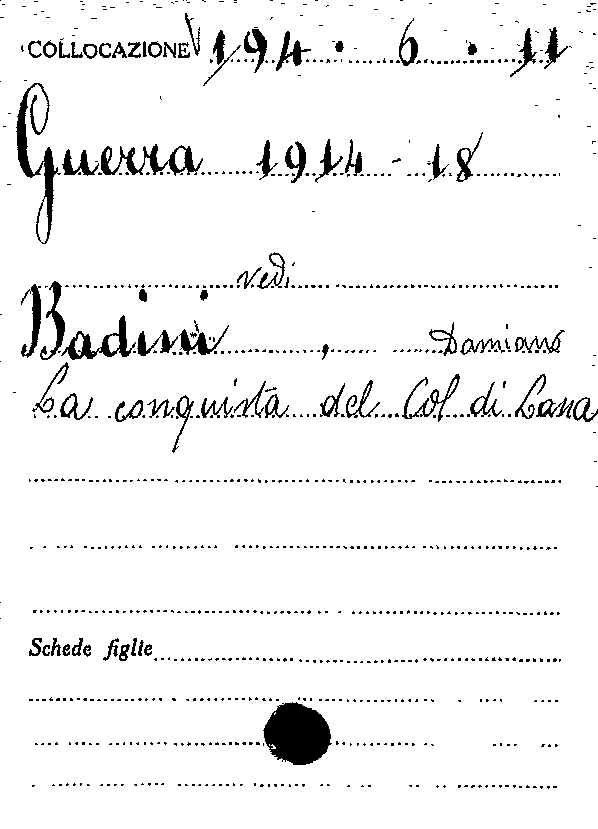 COLLOCAZIONE 194 · 6 · 11
Guerra 1914-18
vedi
Badini, Damiano
La conquista del Col di Lana
Schede figlie